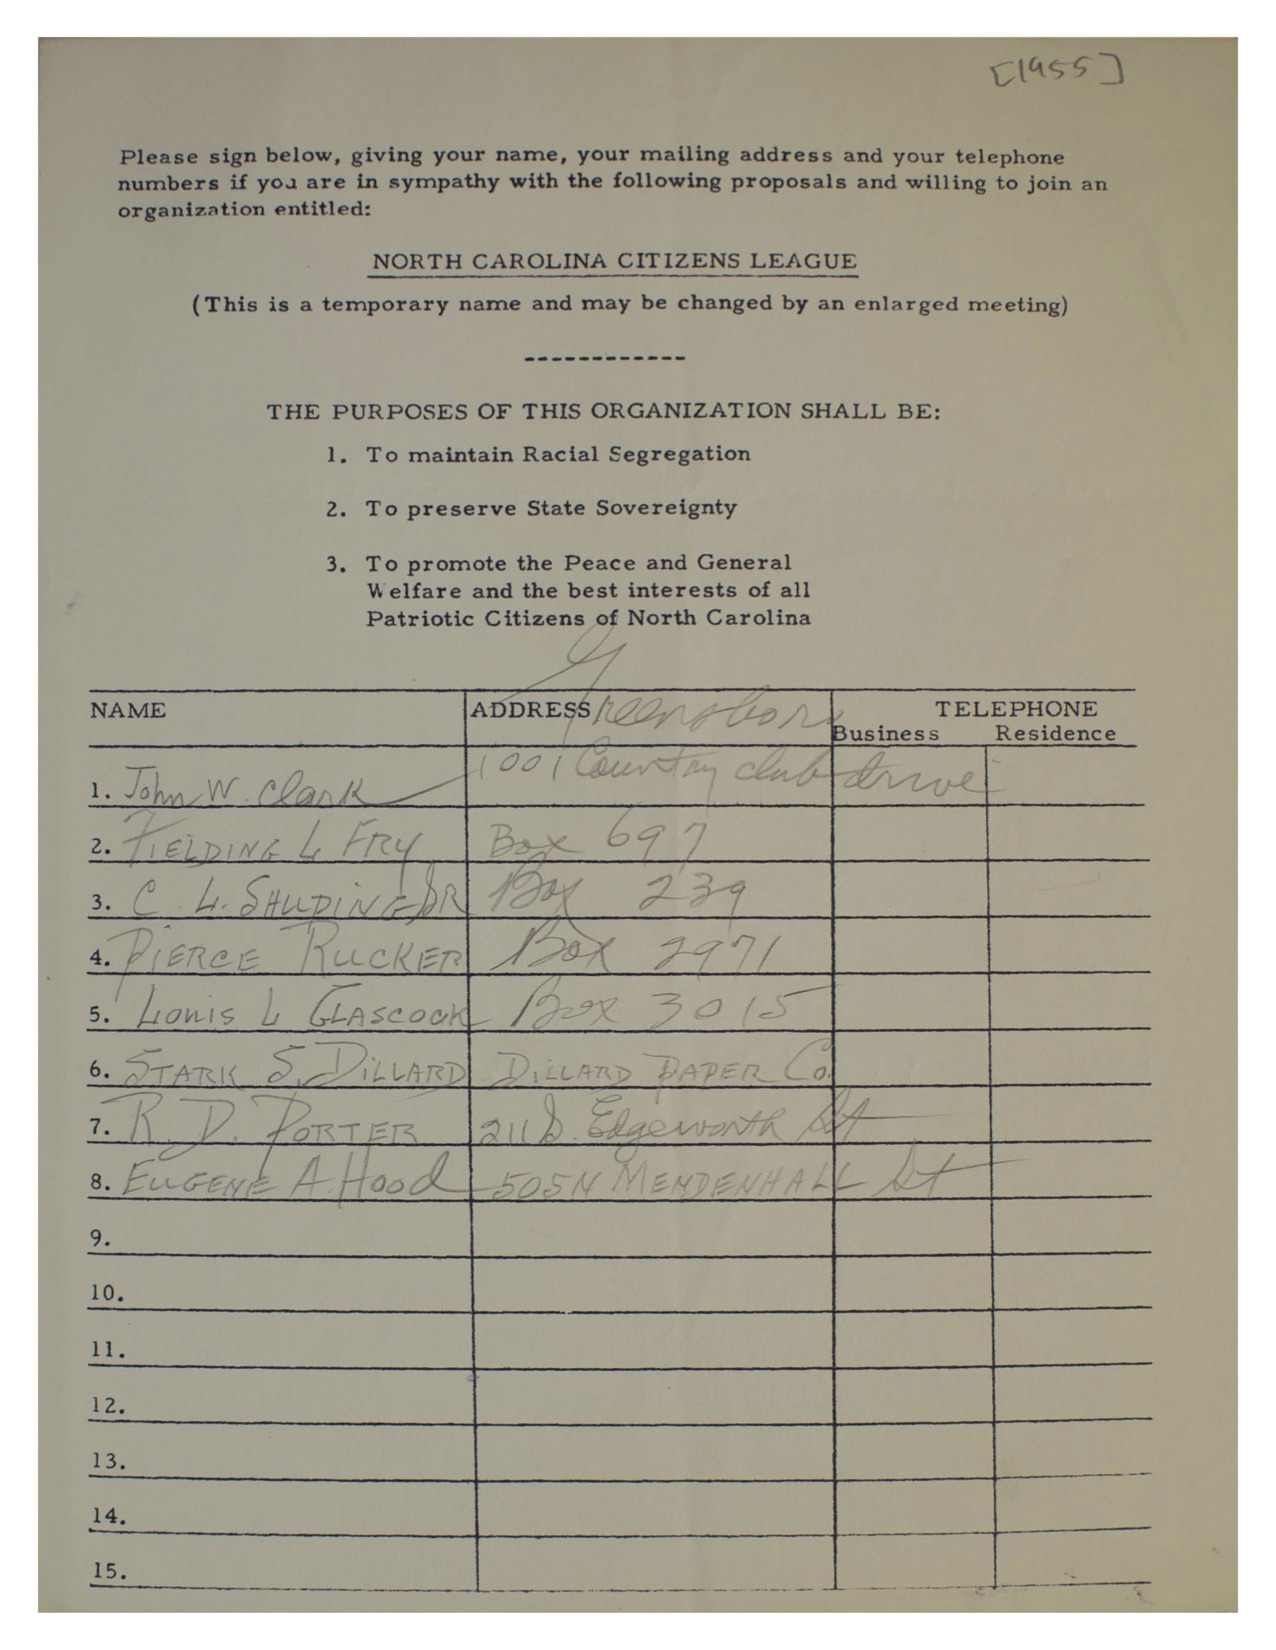 [1955]
Please sign below, giving your name, your mailing address and your telephone
numbers if you are in sympathy with the following proposals and willing to join an
organization entitled:
NORTH CAROLINA CITIZENS LEAGUE
(This is a temporary name and may be changed by an enlarged meeting)
------------
THE PURPOSES OF THIS ORGANIZATION SHALL BE:
1. To maintain Racial Segregation
2. To preserve State Sovereignty
3. To promote the Peace and General
Welfare and the best interests of all
Patriotic Citizens of North Carolina
NAME ADDRESS Greensboro TELEPHONE
Business Residence
1. John W. Clark 1001 Country club drive
2. FIELDING L FRY Box 697
3. C. L. SHUPING JR Box 239
4. PIERCE RUCKER Box 2971
5. Louis L GLASCOCK Box 3015
6. STARK S. DILLARD DILLARD PAPER Co.
7. R. D. PORTER 211 S. Edgeworth St
8. EUGENE A. Hood 505 N MENDENHALL St
9.
10.
11.
12.
13.
14.
15.